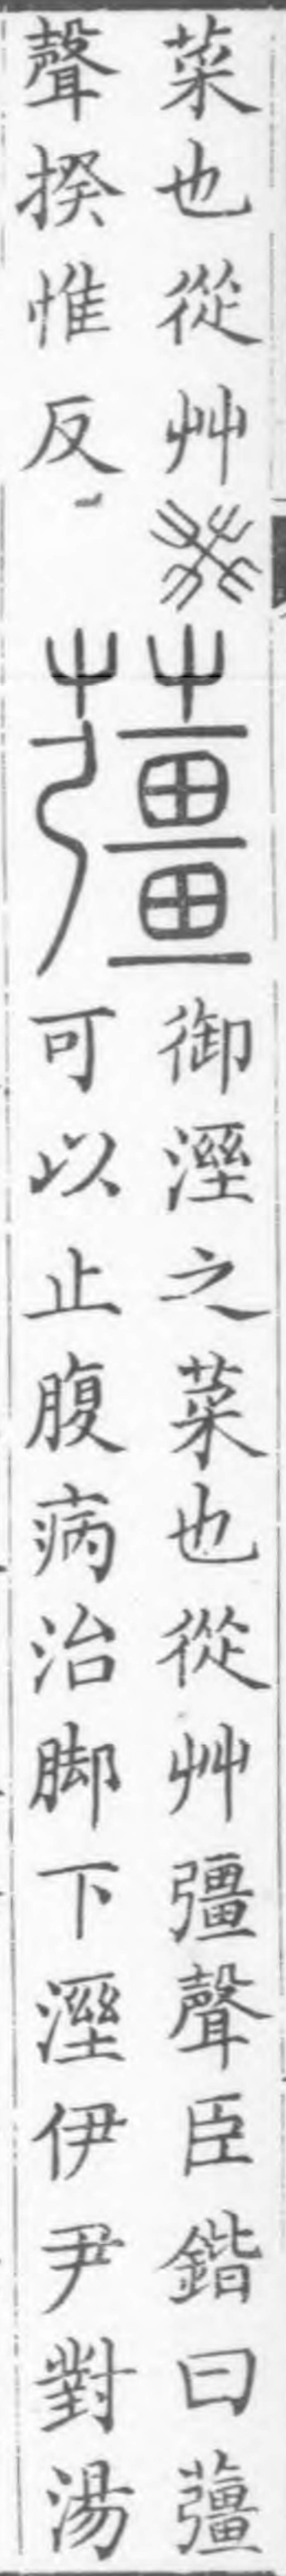 菜也從艸𤼩
聲揆惟反
䕬
御溼之菜也從艸彊聲臣鍇曰䕬
可以止腹病治脚下溼伊尹對湯